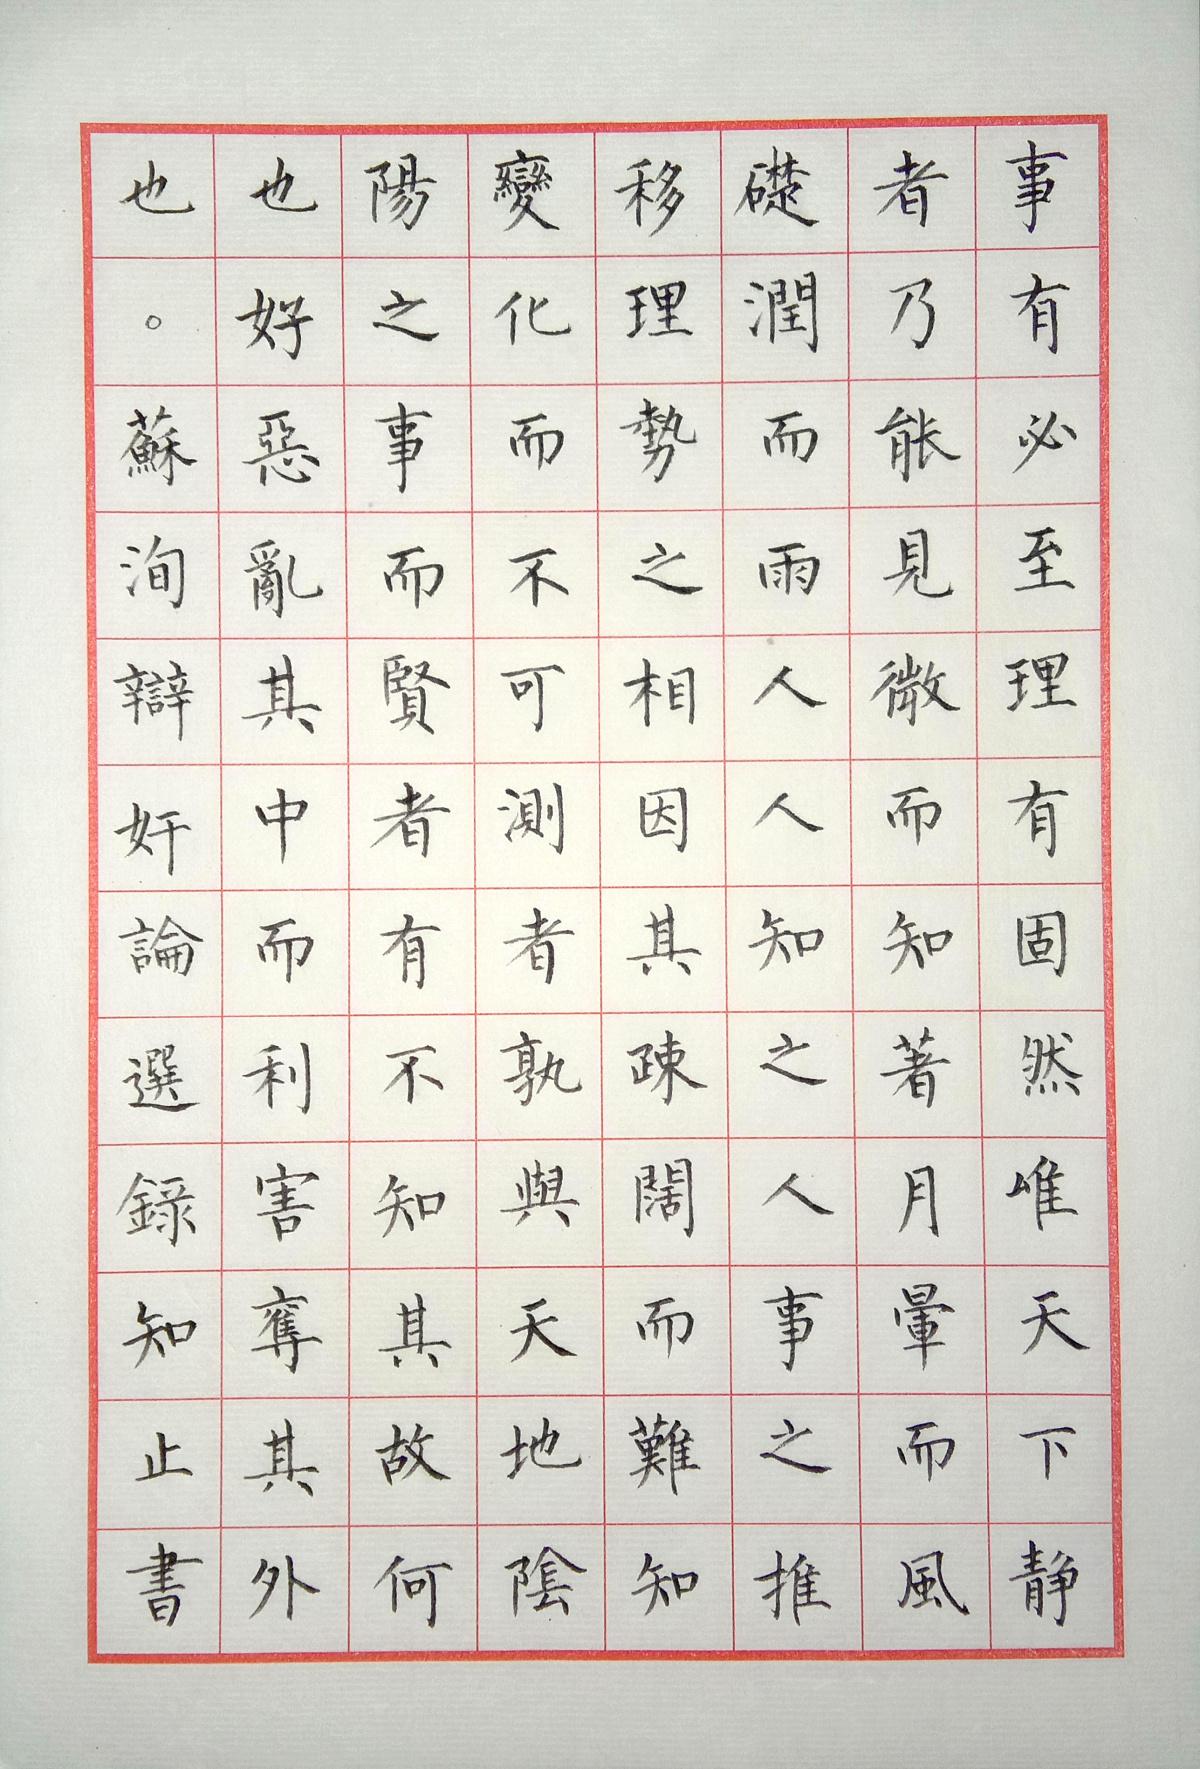 事有必至理有固然唯天下静
者乃能見微而知著月暈而風
礎潤而雨人人知之人事之推
移理勢之相因其疎闊而難知
變化而不可測者孰與天地陰
陽之事而賢者有不知其故何
也好惡亂其中而利害奪其外
也。蘇洵辯奸論選錄知止書